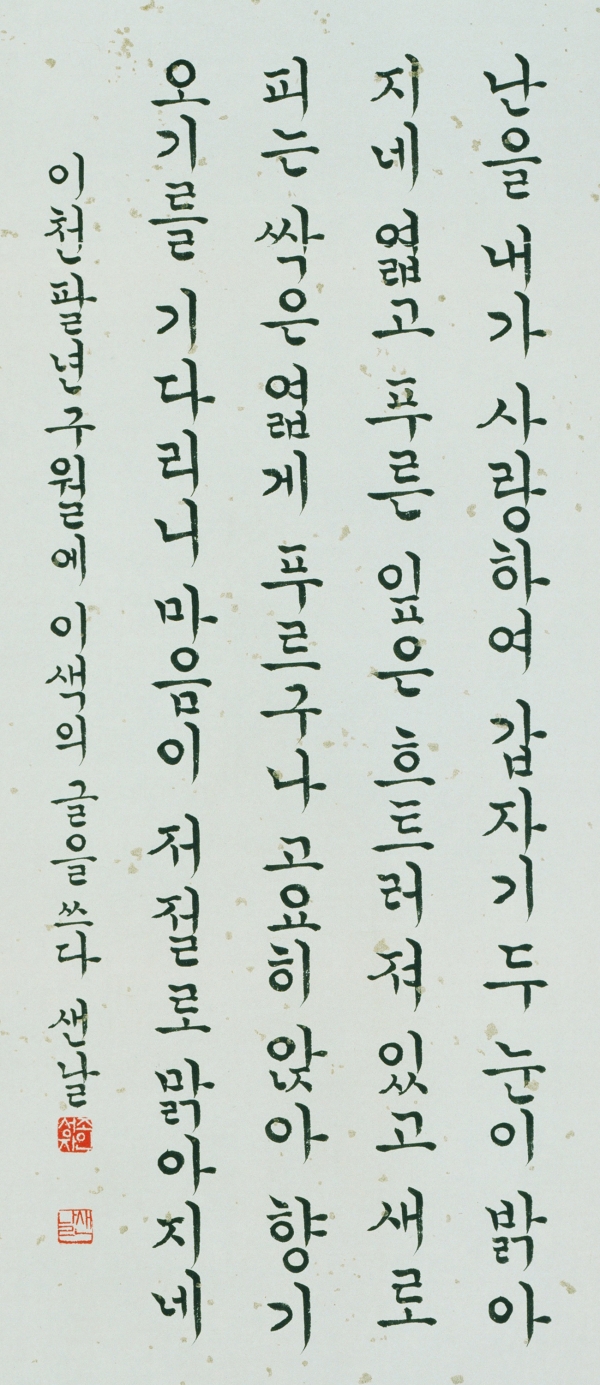 난을 내가 사랑하여 갑자기 두 눈이 밝아
지네 엷고 푸른 잎은 흐트러져 있고 새로
피는 싹은 엷게 푸르구나 고요히 앉아 향기
오기를 기다리니 마음이 저절로 맑아지네
이천팔년 구월에 이색의 글을 쓰다 샌날